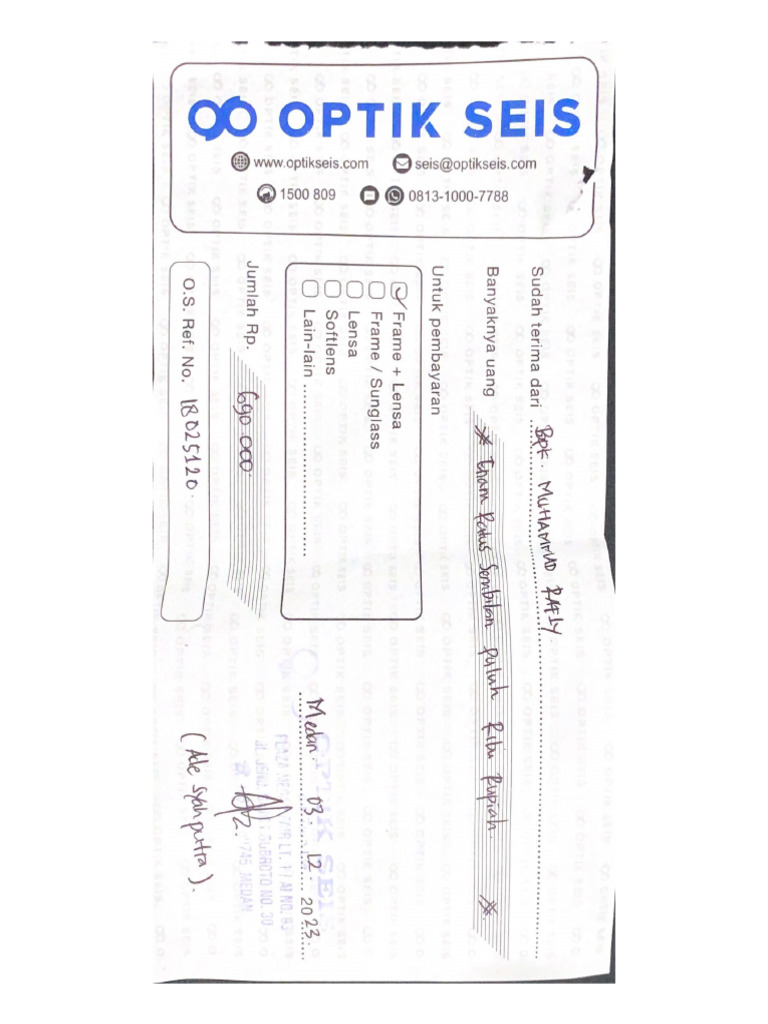 OPTIK SEIS
www.optikseis.com seis@optikseis.com
1500 809 0813-1000-7788
Sudah terima dari Bpk. MUHAMMAD RAFLY
Banyaknya uang # Enam Ratus Sembilan puluh Ribu Rupiah. #
Untuk pembayaran
Frame + Lensa
Frame / Sunglass
Lensa
Softlens
Lain-lain
Jumlah Rp. 690.000
O.S. Ref. No. 18025120
Medan 03 12 2023
OPTIK SEIS
LT. 1 / AI NO. 63
SUBROTO NO. 30
MEDAN
(Ade Syahputra).